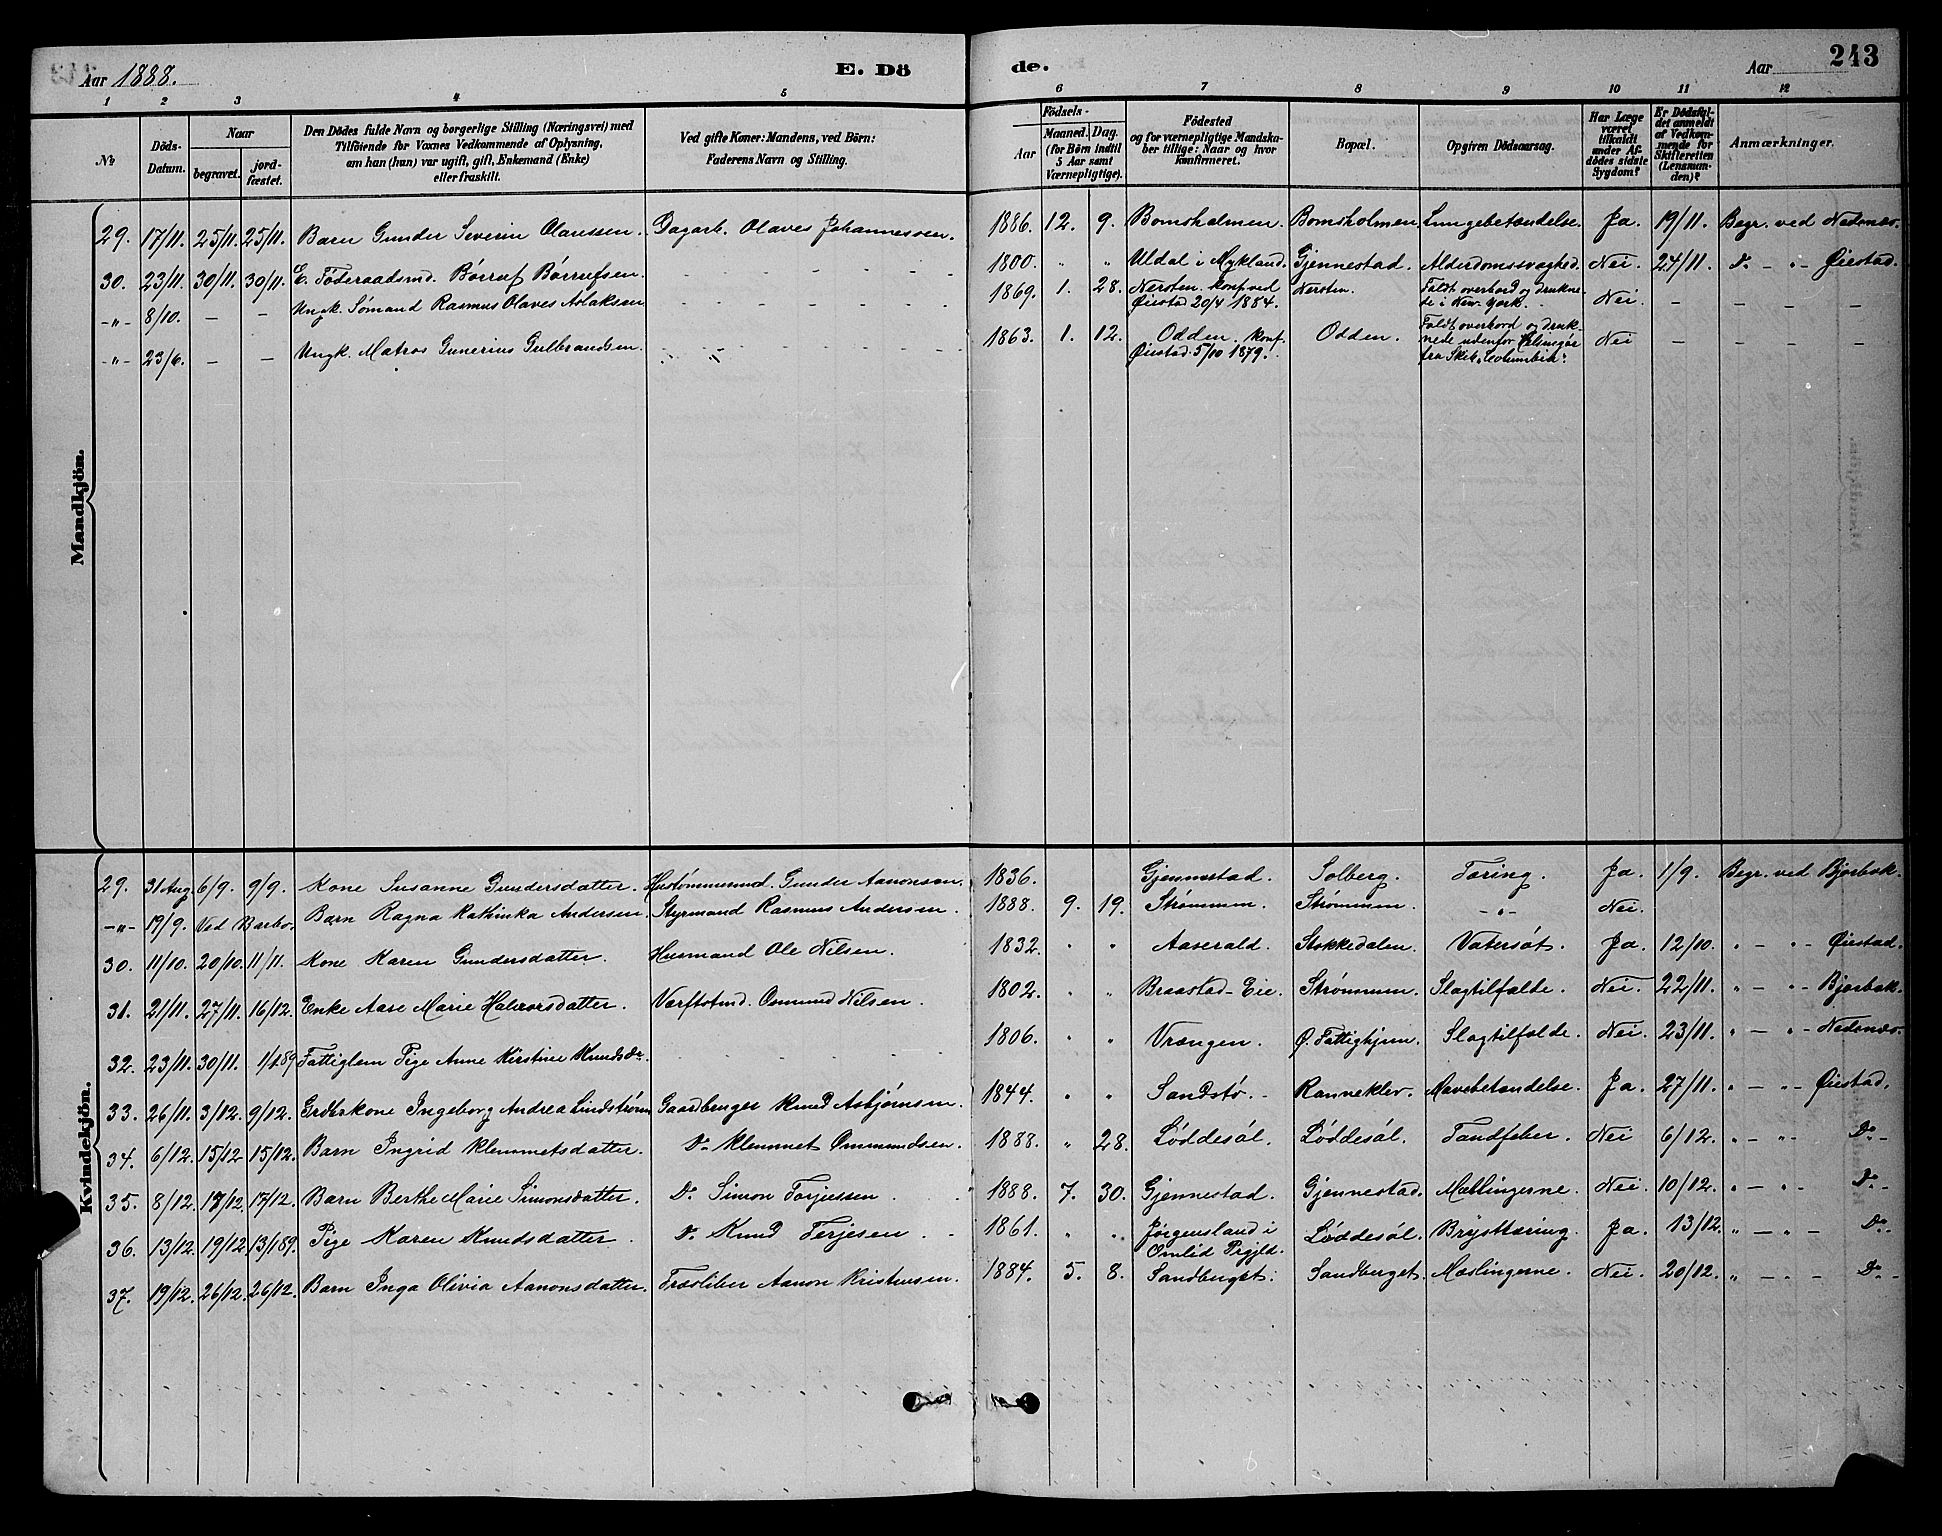 Aar 1888.
E. Dö
de.
Aar
243
1 2 3 4 5 6 7 8 9 10 11 12
No
Döds-Datum.
Naar
begravet.
jordfæstet.
Den Dödes fulde Navn og borgerlige Stilling (Næringsvei) med
Tilföiende for Voxnes Vedkommende af Oplysning,
om han (hun) var ugift, gift, Enkemand (Enke)
eller fraskilt.
Ved gifte Koner: Mandens, ved Börn:
Faderens Navn og Stilling.
Födsels-
Aar
Maaned. Dag.
(for Börn indtil
5 Aar samt
Værnepligtige).
Födested
og for værnepligtige Mandskaber tillige: Naar og hvor
konfirmeret.
Bopæl.
Opgiven Dödsaarsag.
Har Læge
været
tilkaldt
under Afdödes sidste
Sygdom?
Er Dödsfaldet anmeldt
af Vedkommende for
Skifteretten
(Lensmanden)?
Anmærkninger.
Mandkjön.
29. 17/11. 25/11. 25/11. Barn Gunder Severin Olavessen. Dagarb. Olaves Johannessen. 1886. 12. 9. Bomsholmen. Bomsholmen. Lungebetændelse. Ja. 19/11. Begr. ved Nedenæs.
30. 23/11. 30/11. 30/11. E. Föderaadsmd. Børruf Børrufsen. 1800. " " Uldal i Mykland. Gjennestad. Alderdomssvaghed. Nei. 24/11. Do - " - Øiestad.
-"- 8/10. - - Ungk. Sømand Rasmus Olaves Aslaksen 1869. 1. 28. Nersten. konf. ved Nersten. Faldt overbord og drukne-
Øiestad 20/4 1884. de i New-York. Nei. - - -
-"- 23/6. - - Ungk. Matros Gunerius Gulbrandsen. 1863. 1. 12. Odden. konf. Odden. Faldt overbord og druk-
Øiestad 5/10 1879. nede udenfor Helsingør Nei - - -
fra Skib "Columbia".
Kvindekjön.
29. 31 Aug 6/9. 9/9. Kone Susanne Gundersdatter. Hustømmermd. Gunder Aanonsen. 1836. Gjennestad. Solberg. Tæring. Ja. 1/9. Begr. ved Bjorbæk.
-"- 19/9. Ved Barbo. Barn Ragna Kathinka Andersen. Styrmand Rasmus Andersen. 1888. 9. 19. Strømmen. Strømmen. -"- Nei.
30. 11/10. 20/10. 11/11. Kone Karen Gundersdatter. Husmand Ole Nilsen. 1832. " " Aaserald. Stokkedalen. Vatersot. Ja. 12/10. " - " - Øiestad.
31. 21/11. 27/11. 16/12. Enke Aase Marie Halvorsdatter. Værftstmd. Osmund Nilsen. 1802. " " Braastad-Eie. Strømmen. Slagtilfælde. Nei. 22/11. " - " - Bjorbæk.
32. 23/11. 30/11. 1/1 89. Fattiglem Pige Anne Kirstine Knudsdr. 1806. " " Vrængen. Ø. Fattighjem. Slagtilfælde. Nei. 23/11. " - " - Nedenæs.
33. 26/11. 3/12. 9/12. Grdbrkone Ingeborg Andrea Lindstrøm Gaardbruger Knud Asbjørnsen. 1844. " " Sandstø. Ranneklev. Mavebetændelse. Ja. 27/11. " - " - Øiestad.
34. 6/12. 15/12 15/12. Barn Ingrid Klemmetsdatter. Do Klemmet Ommundsen. 1888. " 28. Løddesøl. Løddesøl. Tandfeber. Nei 6/12. " - " - Do -
35. 8/12. 17/12. 17/12. Barn Berthe Marie Simonsdatter. Do Simon Torjessen. 1888. 7. 30. Gjennestad. Gjennestad. Mæslingerne. Nei. 10/12. " - " - Do -
36. 13/12. 19/12. 13/1 89. Pige Karen Knudsdatter. Do Knud Terjesen. 1861. " " Jørgensland i Løddesøl. Brysttæring. Ja. 13/12. " - " - Do -
Omlid Prgjld.
37. 19/12. 26/12. 26/12. Barn Inga Olivia Aanonsdatter. Træsliber Aanon Kristensen. 1884. 5. 8. Sandberget. Sandberget. Mæslingerne. Nei. 20/12. " - " - Do -